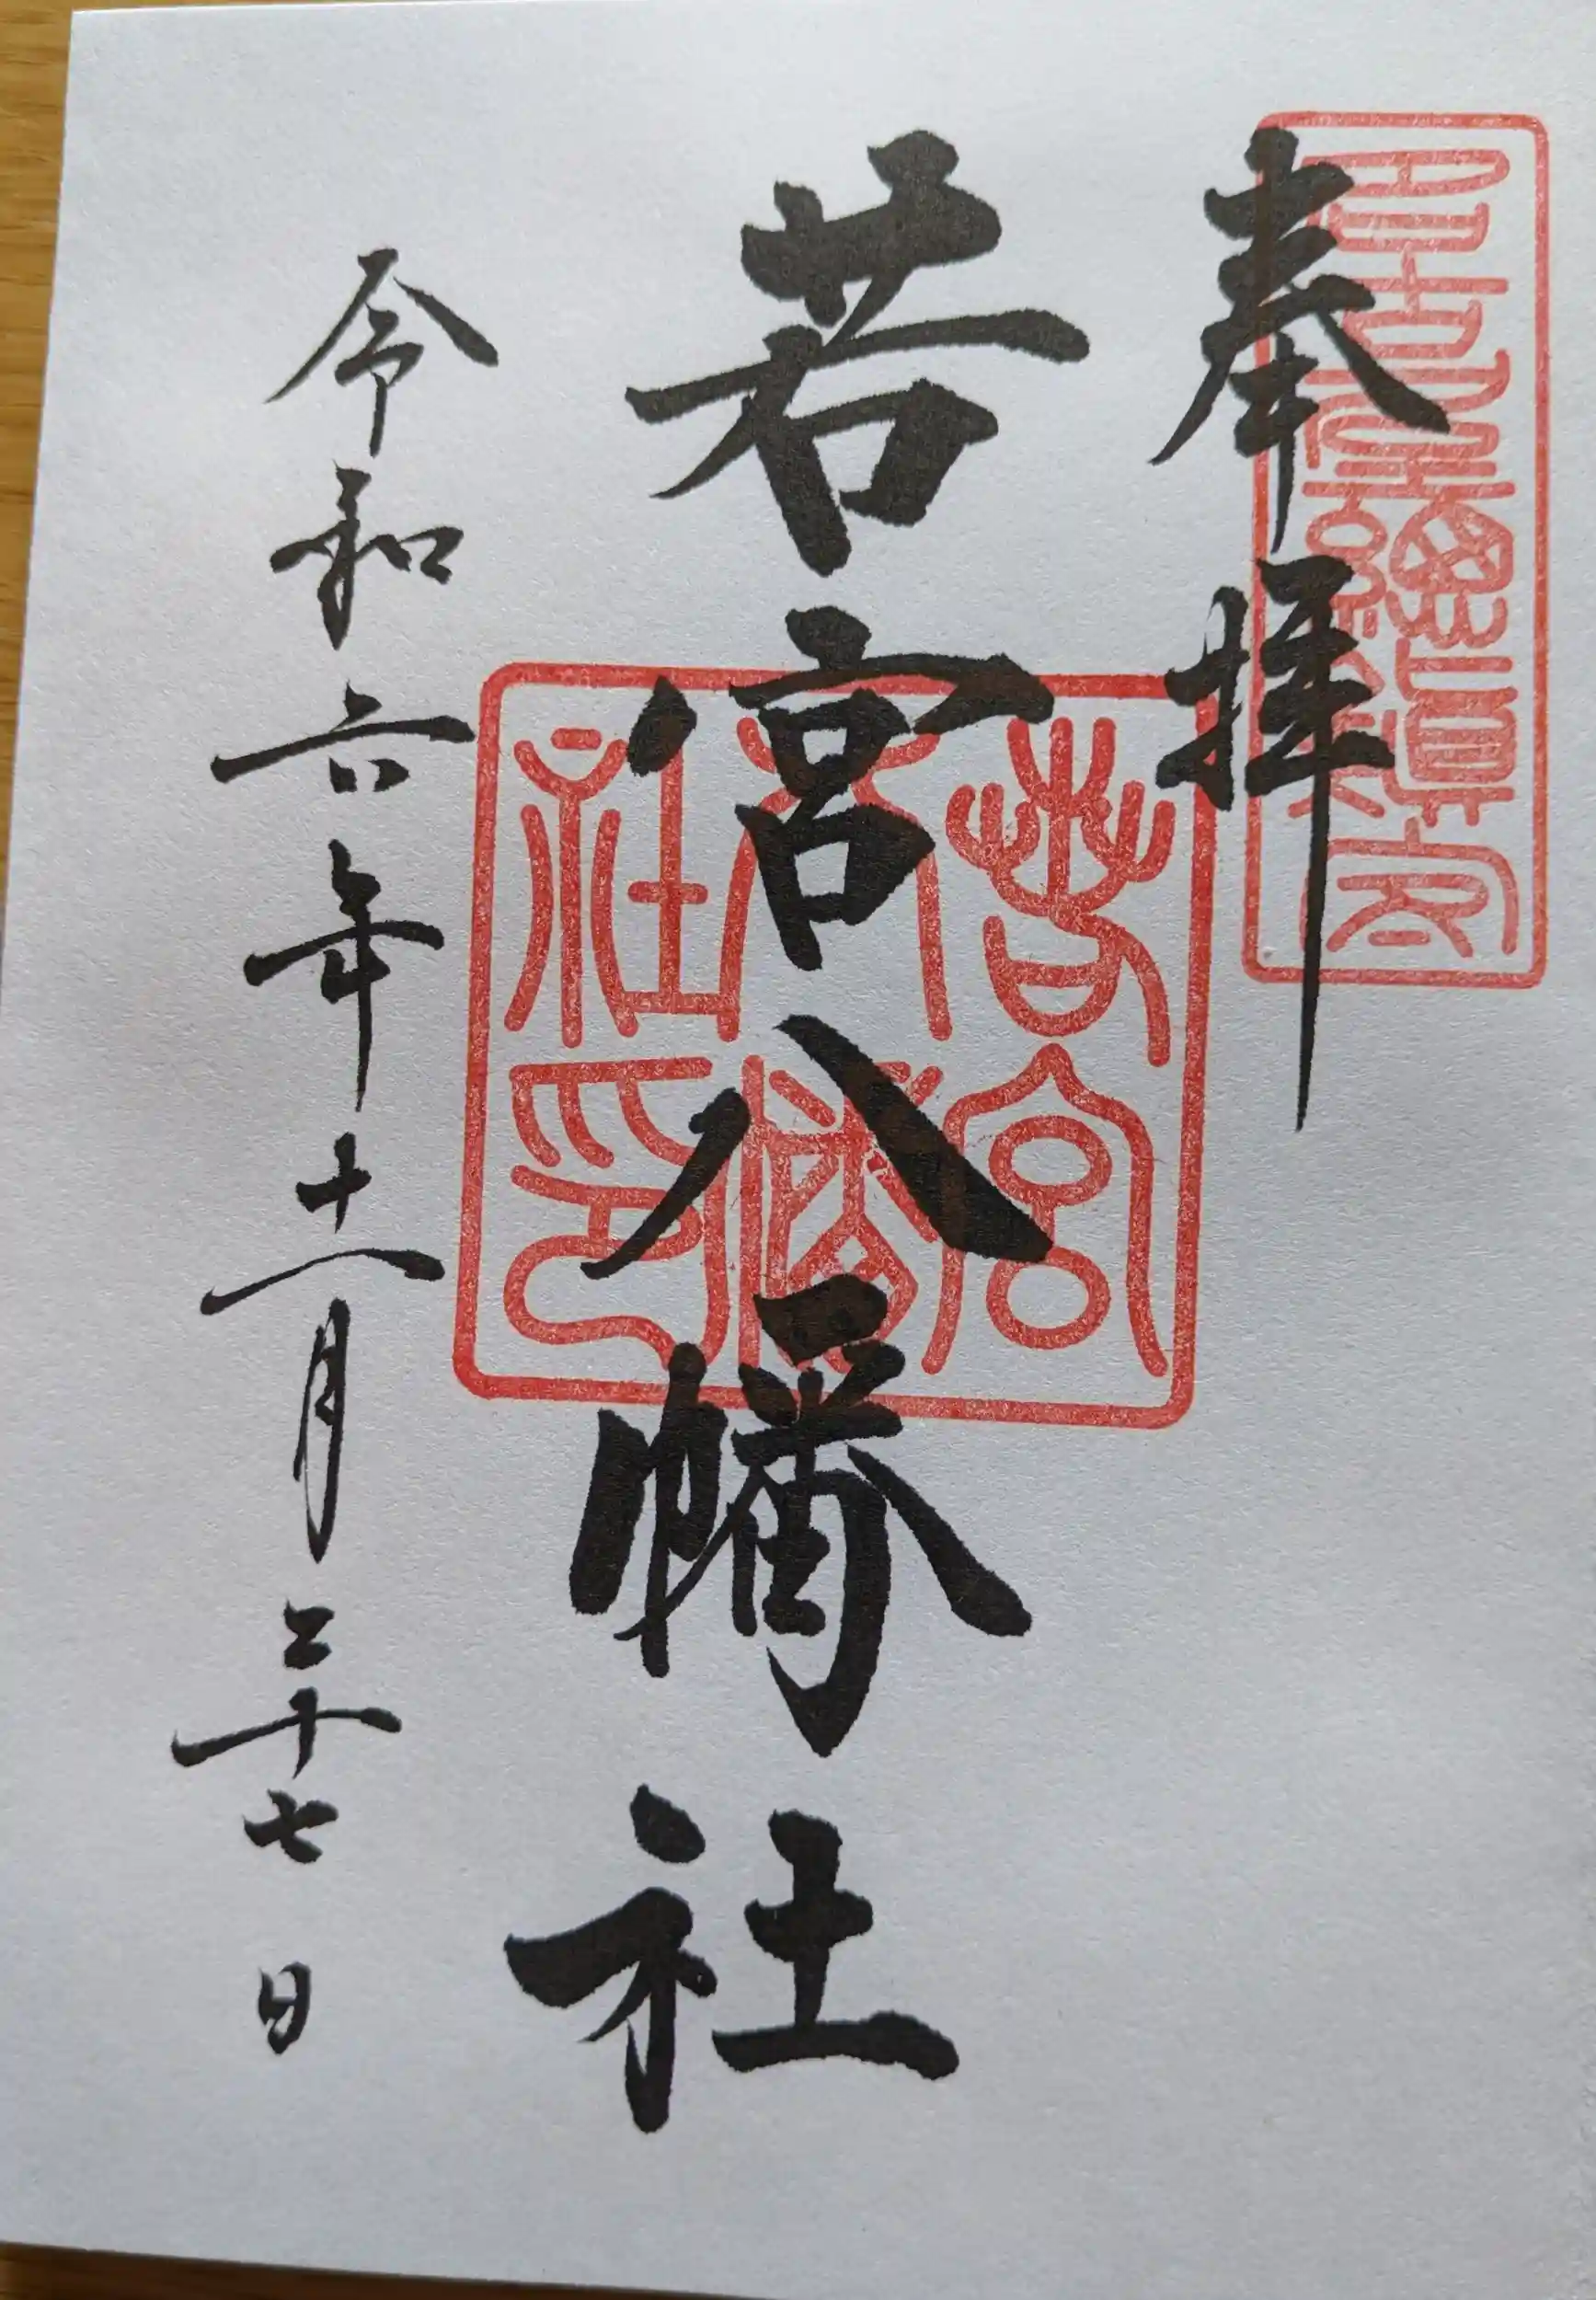 奉拝
名古屋総鎮守
若宮八幡社
若宮八幡社印
令和六年十一月二十七日